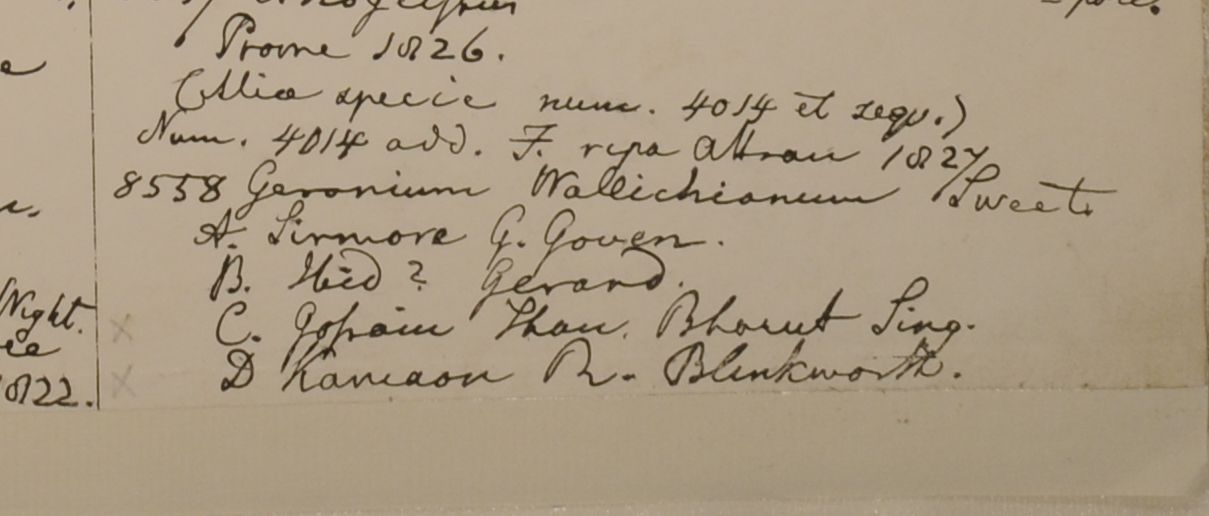 Prome 1826.
(Aliæ specie num. 4014 et sequ.)
Num. 4014 add. F. ripa Attran 1827
8558 Geranium Wallichianum Sweet.
A. Sirmore G. Govan.
B. Ibid? Gerard.
C. Gosain Than. Bharut Sing.
D Kamaon R. Blinkworth.
Wight.
1822.